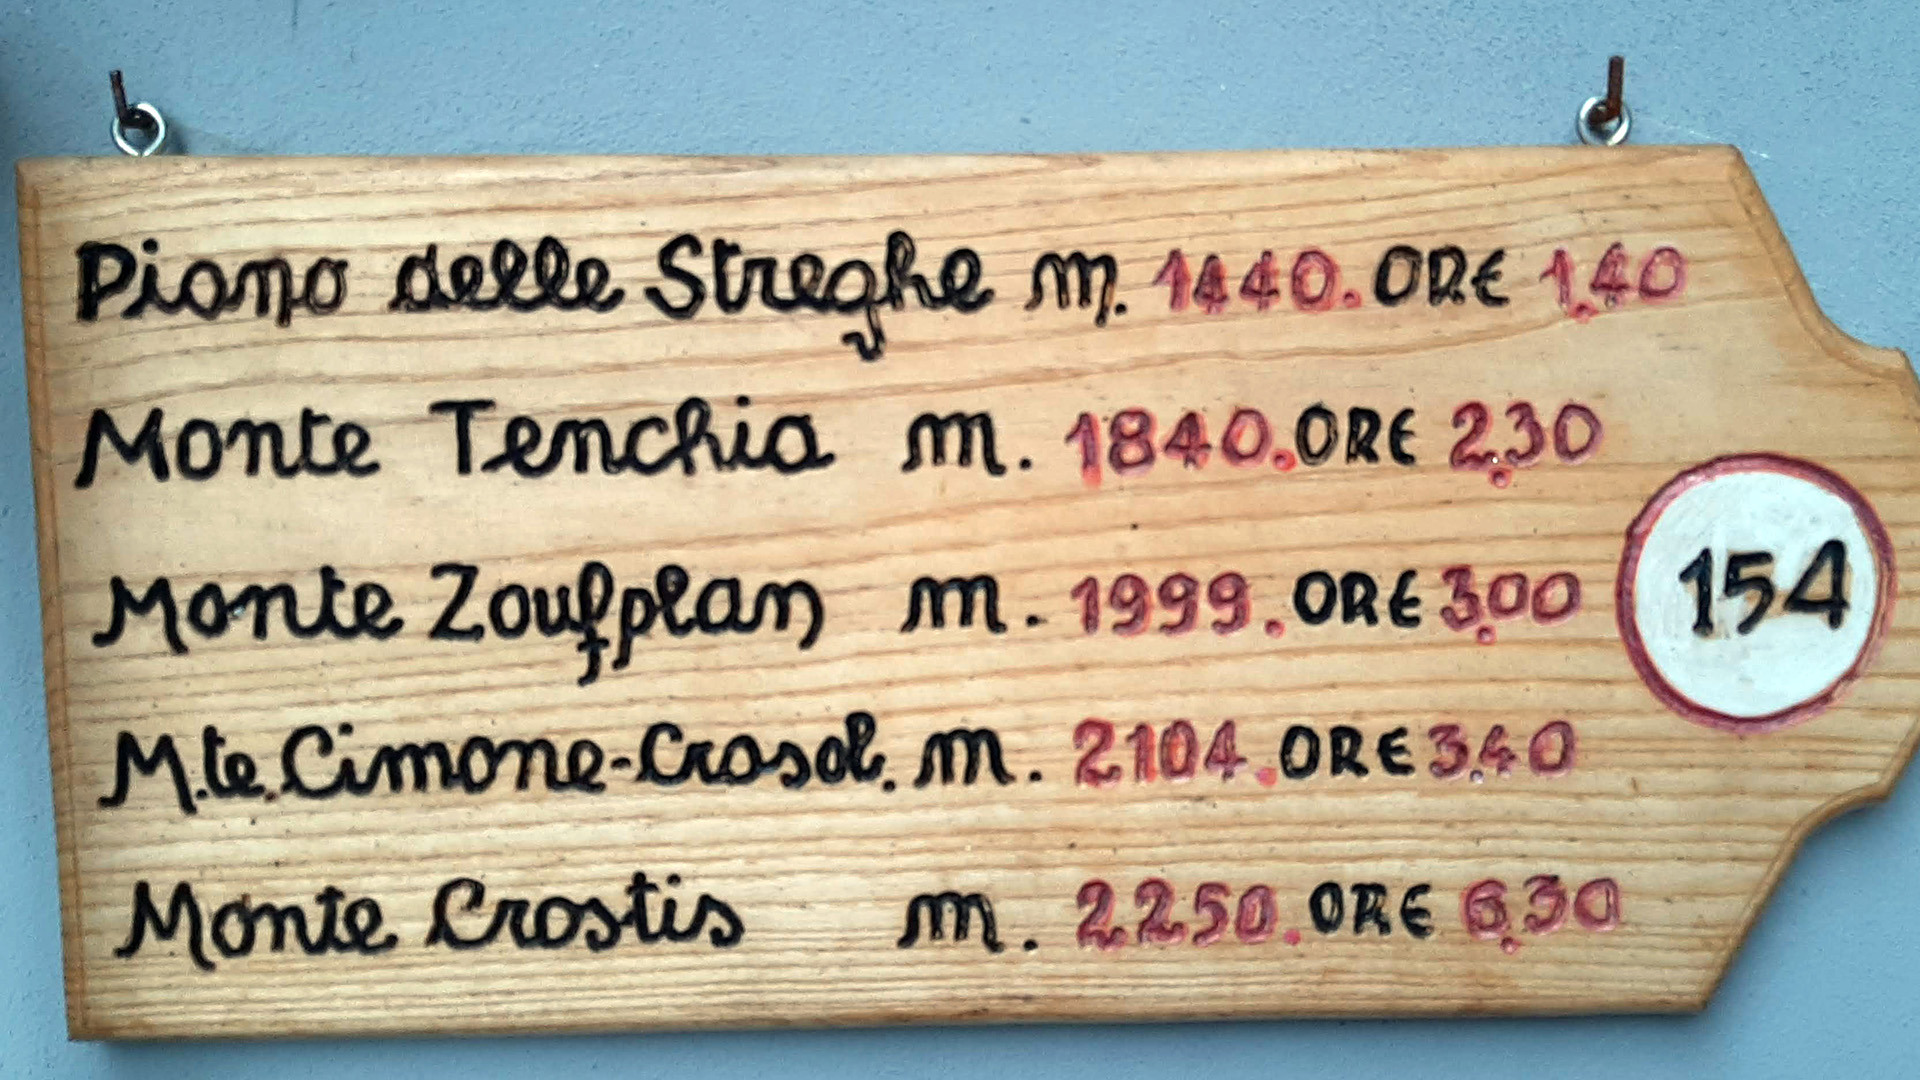 Piano delle Streghe m. 1440. ORE 1.40
Monte Tenchia m. 1840. ORE 2.30
Monte Zoufplan m. 1999. ORE 3.00
M.te. Cimone-Crasol. m. 2104. ORE 3.40
Monte Crostis m. 2250. ORE 6.30
154